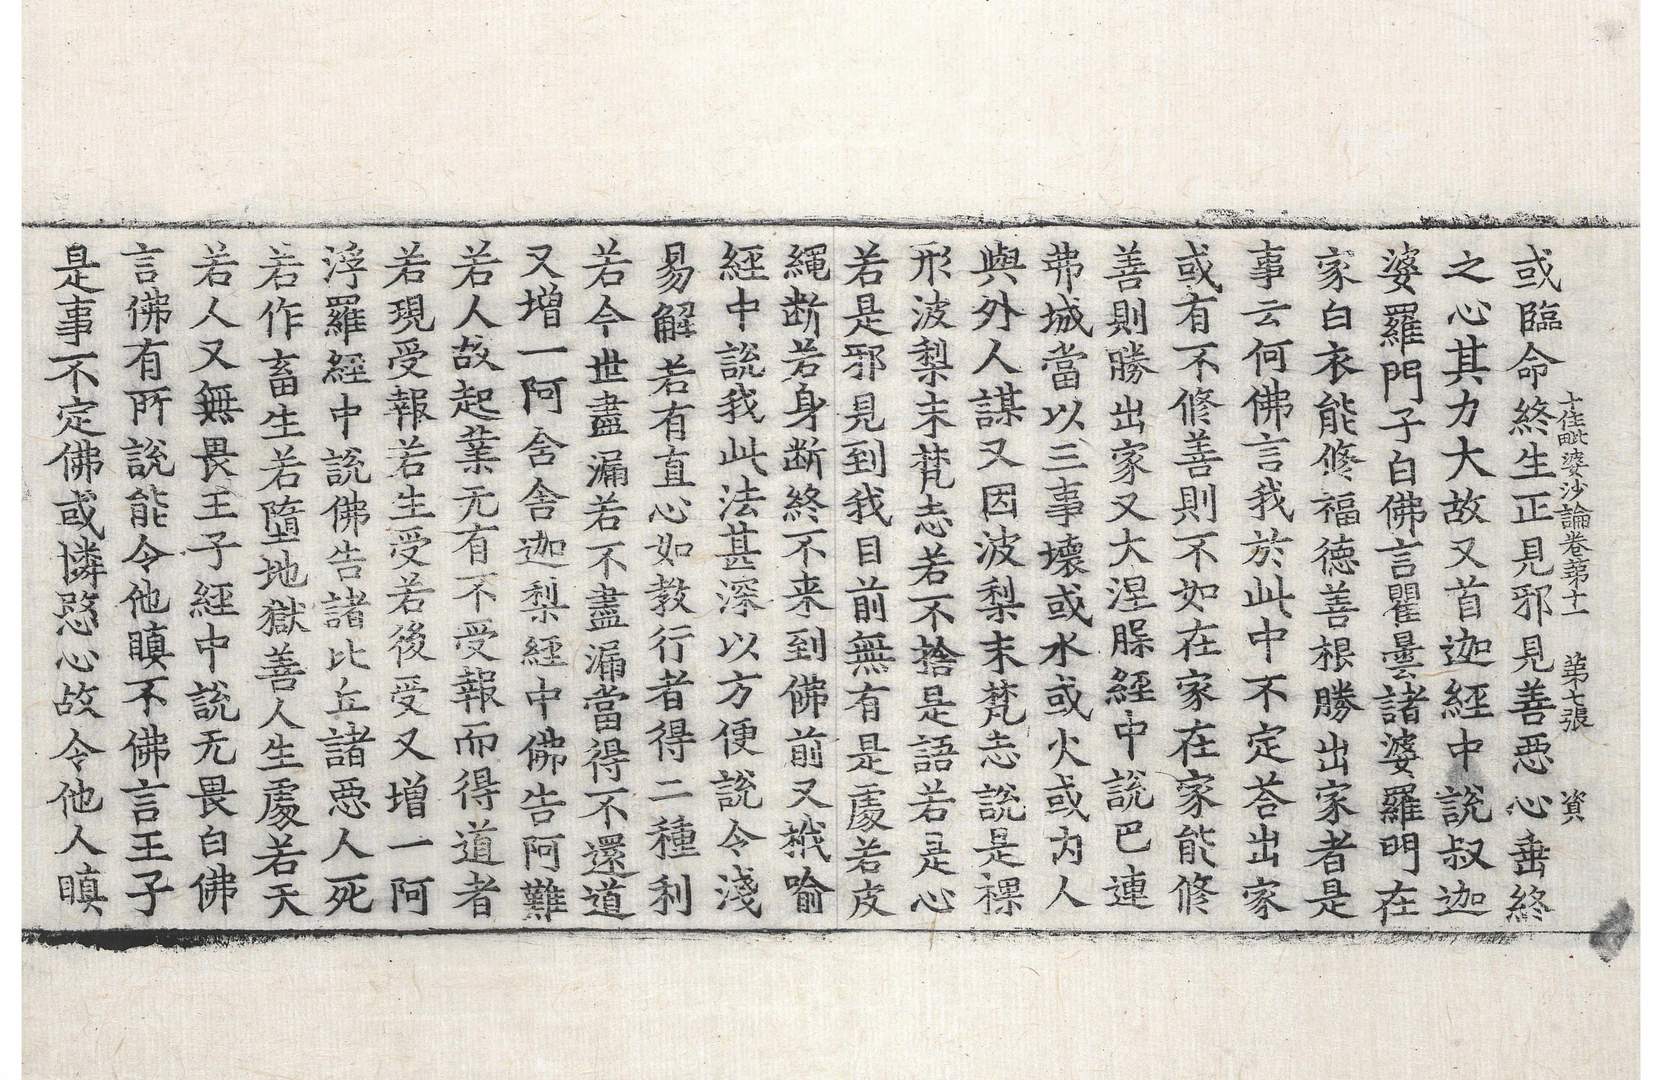 十住毗婆沙論卷第十一　第七張　資
或臨命終生正見邪見善惡心垂終
之心其力大故又首迦經中說叔迦
婆羅門子白佛言瞿曇諸婆羅門在
家白衣能修福德善根勝出家者是
事云何佛言我於此中不定荅出家
或有不修善則不如在家在家能修
善則勝出家又大涅𣊭經中說巴連
弗城當以三事壞或水或火或内人
與外人謀又因波梨末梵志說是裸
形波梨末梵志若不捨是語若是心
若是邪見到我目前無有是處若皮
繩断若身断終不来到佛前又栰喻
經中說我此法甚深以方便說令淺
易解若有直心如教行者得二種利
若今世盡漏若不盡漏當得不還道
又增一阿含舍迦梨經中佛告阿難
若人故起業无有不受報而得道者
若現受報若生受若後受又增一阿
浮羅經中說佛告諸比丘諸惡人死
若作畜生若墮地獄善人生處若天
若人又無畏王子經中說无畏白佛
言佛有所說能令他瞋不佛言王子
是事不定佛或憐愍心故令他人瞋